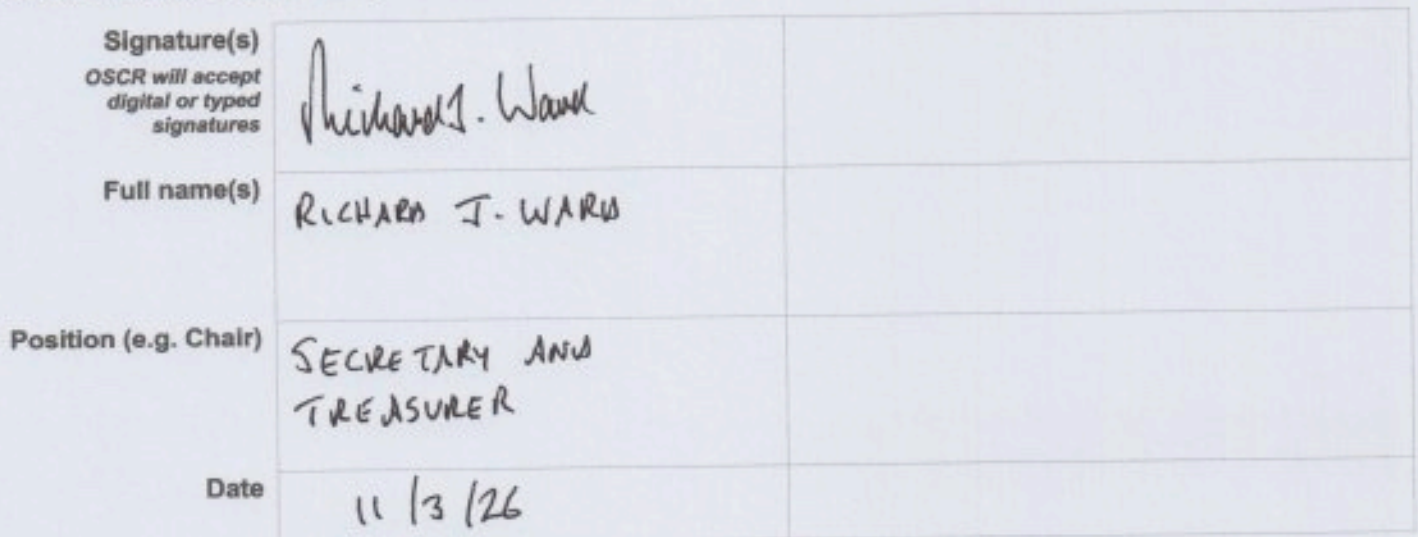 Signature(s)
OSCR will accept
digital or typed
signatures
Richard J. Ward
Full name(s)
RICHARD J. WARD
Position (e.g. Chair)
SECRETARY AND
TREASURER
Date
11/3/26